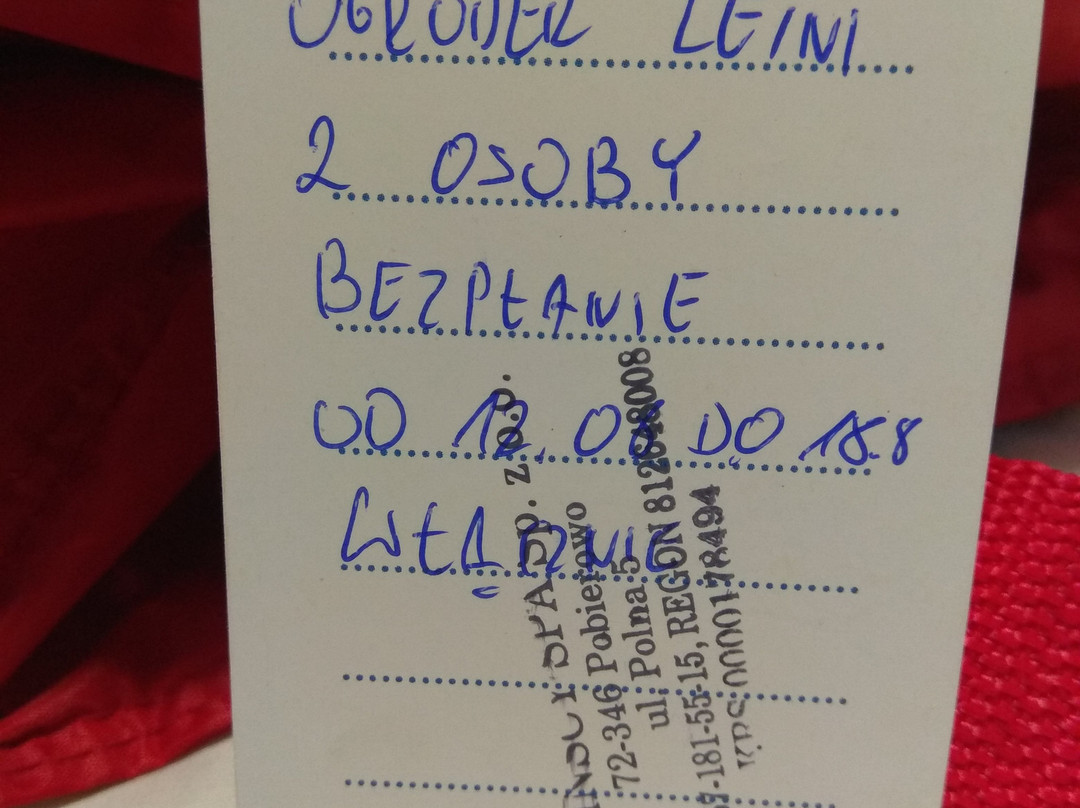 OGRÓDEK LETNI
2 OSOBY
BEZPŁATNIE
OD 12.08 DO 18.8
WŁĄCZNIE
SPA Sp. z o.o.
72-346 Pobierowo
ul. Polna 5
-181-55-15, REGON 812648008
KRS 0000178494